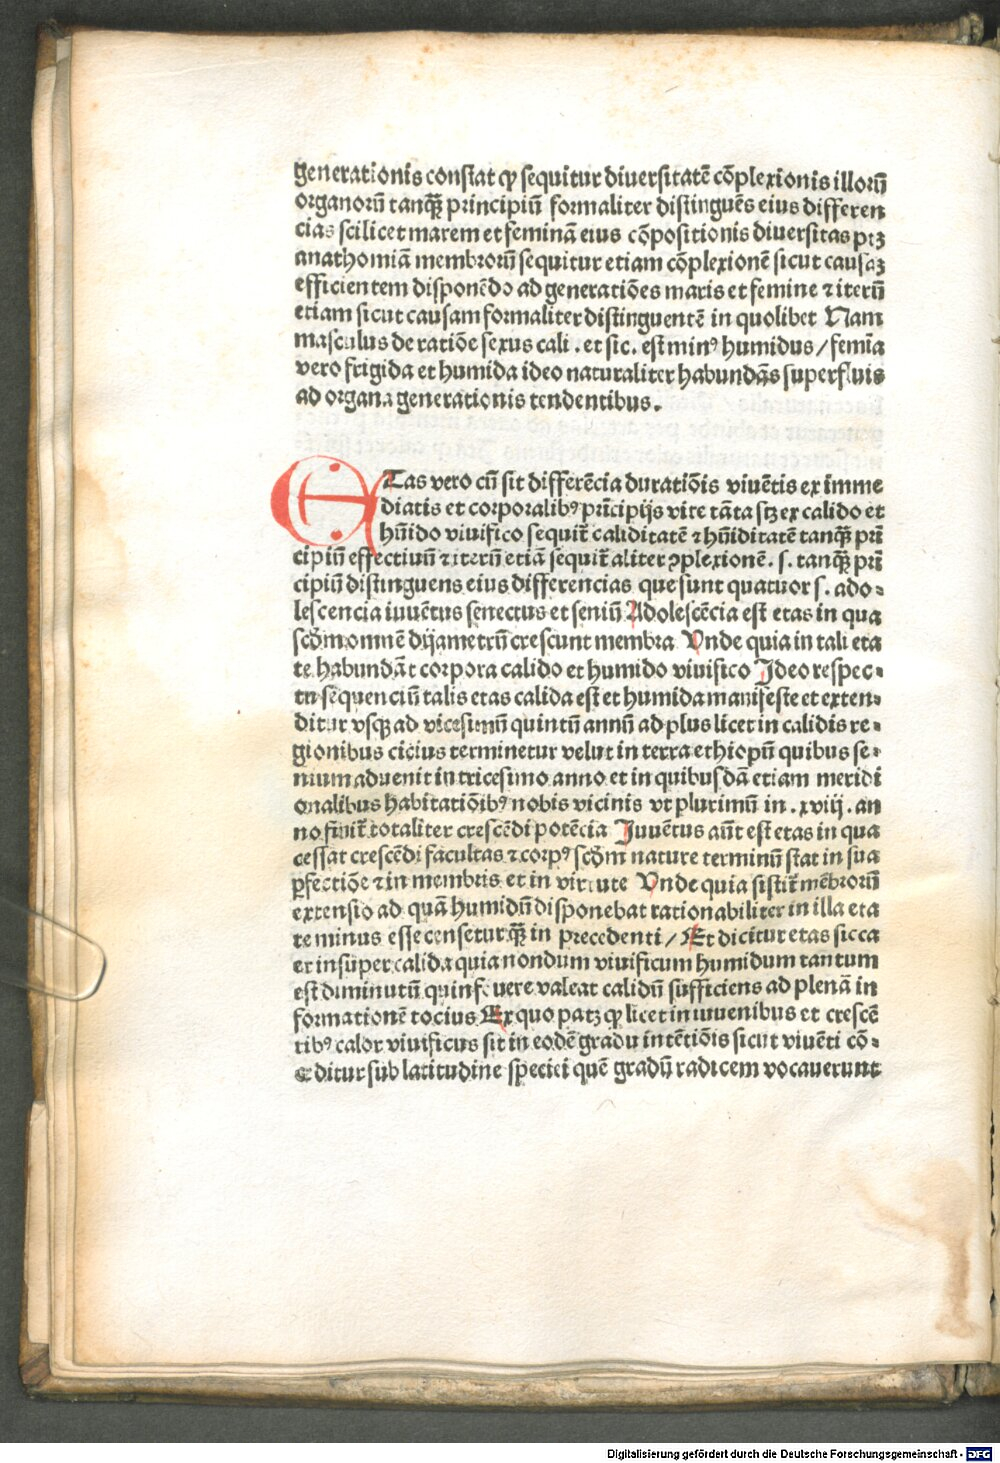 generationis constat ꝙ sequitur diuersitatē cōplexionis illorū
organorū tanq̄ꝫ principiū formaliter distinguēs eius differen
cias scilicet marem et feminā eius cōpositionis diuersitas ptꝫ
anathomiā membrorū sequitur etiam cōplexionē sicut causaꝫ
efficientem disponēdo ad generatiōes maris et femine ⁊ iterū
etiam sicut causam formaliter distinguentē in quolibet Nam
masculus de ratiōe sexus cali . et sic. est minꝰ humidus / femīa
vero frigida et humida ideo naturaliter habundās superfluis
ad organa generationis tendentibus.
ETas vero cū sit differēcia duratiōis viuētis ex imme
diatis et corporalibꝰ prīcipijs vite tāta sꝫ ex calido et
hūido viuifico sequit̄ caliditatē ⁊ hūiditatē tanq̄ꝫ prī
cipiū effectiuū ⁊ iterū etiā sequit̄ aliter ꝯplexionē. s. tanq̄ꝫ prī
cipiū distinguens eius differencias que sunt quatuor s. ado⸗
lescencia iuuētus senectus et seniū Adolescēcia est etas in qua
scd̄m omnē dijametrū crescunt membra Vnde quia in tali eta
te habundāt corpora calido et humido viuifico Ideo respec⸗
tu sequenciū talis etas calida est et humida manifeste et exten⸗
ditur vsqꝫ ad vicesimū quintū annū ad plus licet in calidis re⸗
gionibus cicius terminetur velut in terra ethiopū quibus se⸗
nium aduenit in tricesimo anno et in quibusdā etiam meridi
onalibus habitatiōibꝰ nobis vicinis vt plurimū in . xviij . an
no finit̄ totaliter crescēdi potēcia Iuuētus aūt est etas in qua
cessat crescēdi facultas ⁊ corpꝰ scd̄m nature terminū stat in sua
ꝑfectiōe ⁊ in membris et in virtute Vnde quia sistit̄ mēbrorū
extensio ad quā humidū disponebat rationabiliter in illa eta
te minus esse censetur q̄ꝫ in precedenti / Et dicitur etas sicca
et insuper calida quia nondum viuificum humidum tantum
est diminutū quin fouere valeat calidū sufficiens ad plenā in
formationē tocius Ex quo patꝫ ꝙ licet in iuuenibus et crescē
tibꝰ calor viuificus sit in eodē gradu intētiōis sicut viuēti cō⸗
ceditur sub latitudine speciei quē gradū radicem vocauerunt
Digitalisierung gefördert durch die Deutsche Forschungsgemeinschaft - DFG